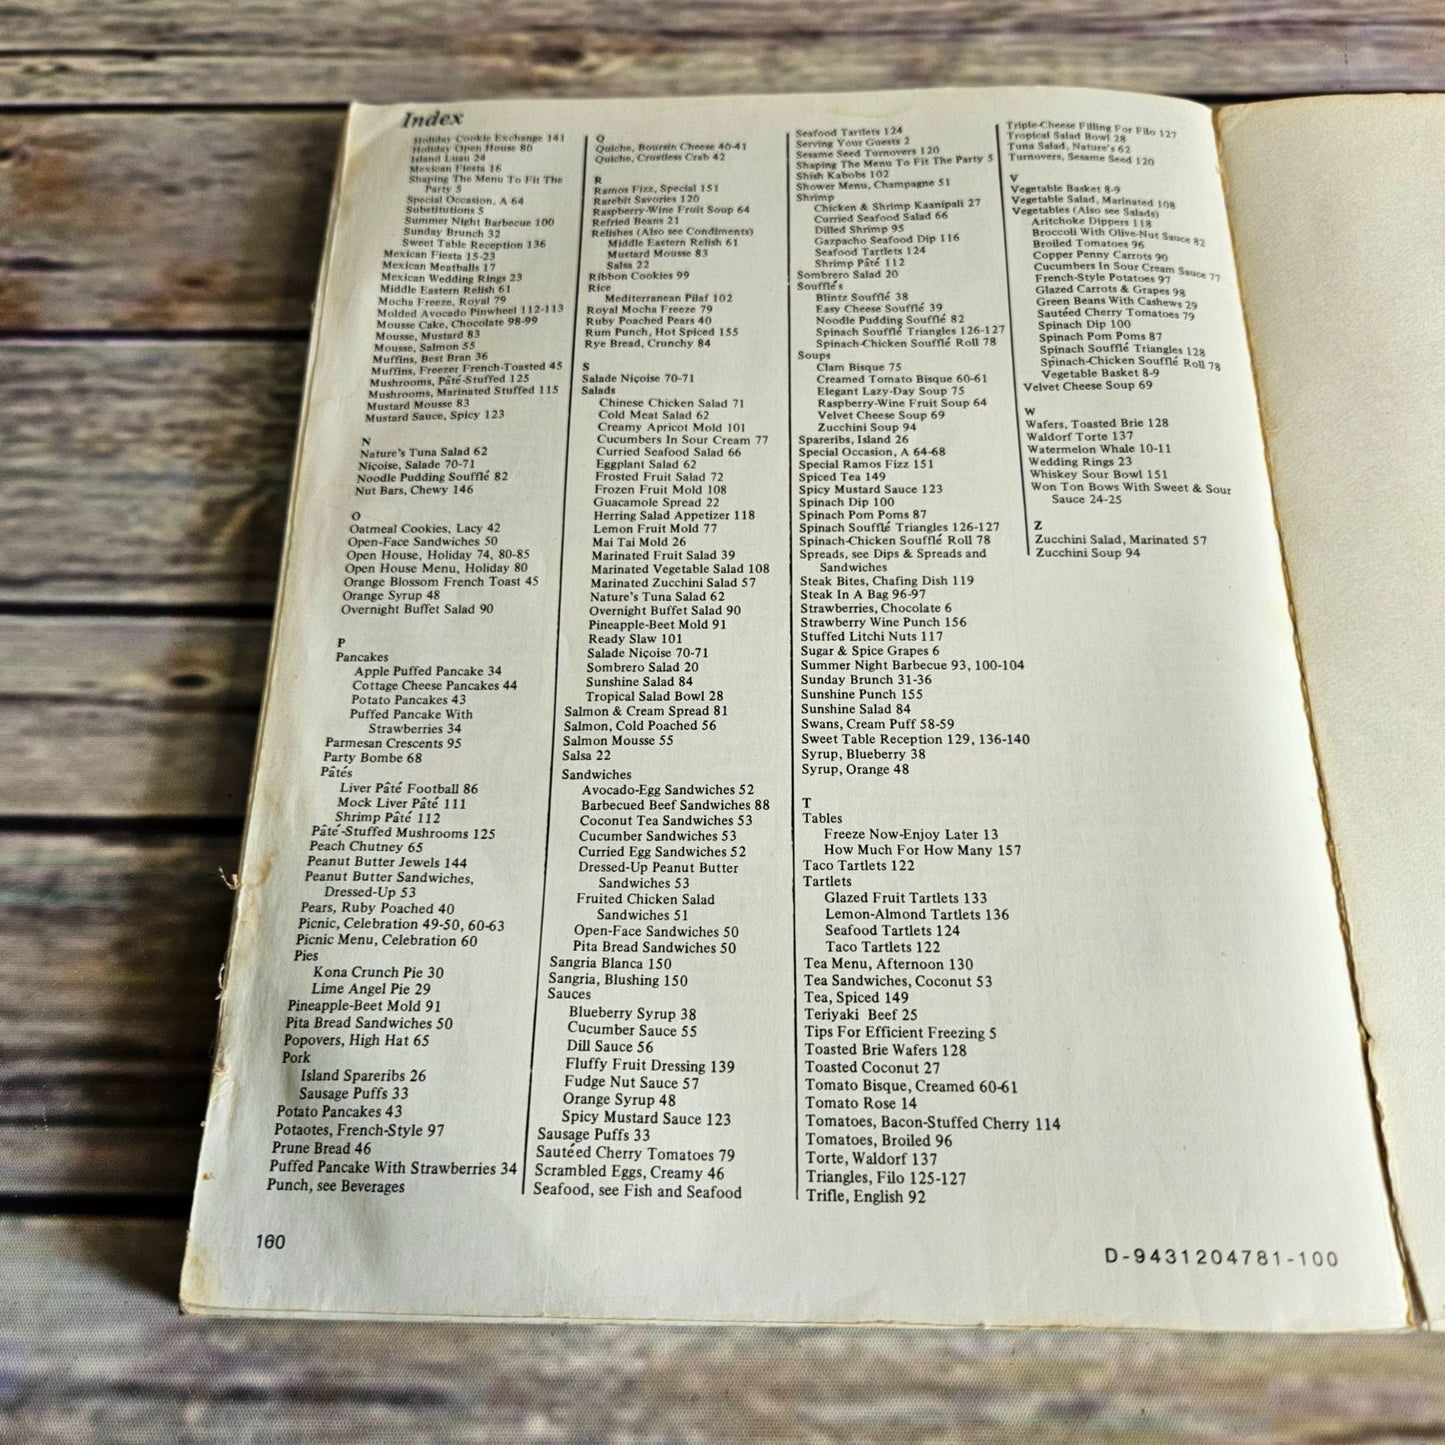 Index
Holiday Cookie Exchange 141
Holiday Open House 80
Island Luau 24
Mexican Fiesta 16
Shaping The Menu To Fit The
Party 5
Special Occasion, A 64
Substitutions 5
Summer Night Barbecue 100
Sunday Brunch 32
Sweet Table Reception 136
Mexican Fiesta 15-23
Mexican Meatballs 17
Mexican Wedding Rings 23
Middle Eastern Relish 61
Mocha Freeze, Royal 79
Molded Avocado Pinwheel 112-113
Mousse Cake, Chocolate 98-99
Mousse, Mustard 83
Mousse, Salmon 55
Muffins, Best Bran 36
Muffins, Freezer French-Toasted 45
Mushrooms, Pâté-Stuffed 125
Mushrooms, Marinated Stuffed 115
Mustard Mousse 83
Mustard Sauce, Spicy 123
N
Nature's Tuna Salad 62
Niçoise, Salade 70-71
Noodle Pudding Soufflé 82
Nut Bars, Chewy 146
O
Oatmeal Cookies, Lacy 42
Open-Face Sandwiches 50
Open House, Holiday 74, 80-85
Open House Menu, Holiday 80
Orange Blossom French Toast 45
Orange Syrup 48
Overnight Buffet Salad 90
P
Pancakes
Apple Puffed Pancake 34
Cottage Cheese Pancakes 44
Potato Pancakes 43
Puffed Pancake With
Strawberries 34
Parmesan Crescents 95
Party Bombe 68
Pâtés
Liver Pâté Football 86
Mock Liver Pâté 111
Shrimp Pâté 112
Pâté-Stuffed Mushrooms 125
Peach Chutney 65
Peanut Butter Jewels 144
Peanut Butter Sandwiches,
Dressed-Up 53
Pears, Ruby Poached 40
Picnic, Celebration 49-50, 60-63
Picnic Menu, Celebration 60
Pies
Kona Crunch Pie 30
Lime Angel Pie 29
Pineapple-Beet Mold 91
Pita Bread Sandwiches 50
Popovers, High Hat 65
Pork
Island Spareribs 26
Sausage Puffs 33
Potato Pancakes 43
Potaotes, French-Style 97
Prune Bread 46
Puffed Pancake With Strawberries 34
Punch, see Beverages
Q
Quiche, Boursin Cheese 40-41
Quiche, Crustless Crab 42
R
Ramos Fizz, Special 151
Rarebit Savories 120
Raspberry-Wine Fruit Soup 64
Refried Beans 21
Relishes (Also see Condiments)
Middle Eastern Relish 61
Mustard Mousse 83
Salsa 22
Ribbon Cookies 99
Rice
Mediterranean Pilaf 102
Royal Mocha Freeze 79
Ruby Poached Pears 40
Rum Punch, Hot Spiced 155
Rye Bread, Crunchy 84
S
Salade Niçoise 70-71
Salads
Chinese Chicken Salad 71
Cold Meat Salad 62
Creamy Apricot Mold 101
Cucumbers In Sour Cream 77
Curried Seafood Salad 66
Eggplant Salad 62
Frosted Fruit Salad 72
Frozen Fruit Mold 108
Guacamole Spread 22
Herring Salad Appetizer 118
Lemon Fruit Mold 77
Mai Tai Mold 26
Marinated Fruit Salad 39
Marinated Vegetable Salad 108
Marinated Zucchini Salad 57
Nature's Tuna Salad 62
Overnight Buffet Salad 90
Pineapple-Beet Mold 91
Ready Slaw 101
Salade Niçoise 70-71
Sombrero Salad 20
Sunshine Salad 84
Tropical Salad Bowl 28
Salmon & Cream Spread 81
Salmon, Cold Poached 56
Salmon Mousse 55
Salsa 22
Sandwiches
Avocado-Egg Sandwiches 52
Barbecued Beef Sandwiches 88
Coconut Tea Sandwiches 53
Cucumber Sandwiches 53
Curried Egg Sandwiches 52
Dressed-Up Peanut Butter
Sandwiches 53
Fruited Chicken Salad
Sandwiches 51
Open-Face Sandwiches 50
Pita Bread Sandwiches 50
Sangria Blanca 150
Sangria, Blushing 150
Sauces
Blueberry Syrup 38
Cucumber Sauce 55
Dill Sauce 56
Fluffy Fruit Dressing 139
Fudge Nut Sauce 57
Orange Syrup 48
Spicy Mustard Sauce 123
Sausage Puffs 33
Sautéed Cherry Tomatoes 79
Scrambled Eggs, Creamy 46
Seafood, see Fish and Seafood
Seafood Tartlets 124
Serving Your Guests 2
Sesame Seed Turnovers 120
Shaping The Menu To Fit The Party 5
Shish Kabobs 102
Shower Menu, Champagne 51
Shrimp
Chicken & Shrimp Kaanipali 27
Curried Seafood Salad 66
Dilled Shrimp 95
Gazpacho Seafood Dip 116
Seafood Tartlets 124
Shrimp Pâté 112
Sombrero Salad 20
Soufflés
Blintz Soufflé 38
Easy Cheese Soufflé 39
Noodle Pudding Soufflé 82
Spinach Soufflé Triangles 126-127
Spinach-Chicken Soufflé Roll 78
Soups
Clam Bisque 75
Creamed Tomato Bisque 60-61
Elegant Lazy-Day Soup 75
Raspberry-Wine Fruit Soup 64
Velvet Cheese Soup 69
Zucchini Soup 94
Spareribs, Island 26
Special Occasion, A 64-68
Special Ramos Fizz 151
Spiced Tea 149
Spicy Mustard Sauce 123
Spinach Dip 100
Spinach Pom Poms 87
Spinach Soufflé Triangles 126-127
Spinach-Chicken Soufflé Roll 78
Spreads, see Dips & Spreads and
Sandwiches
Steak Bites, Chafing Dish 119
Steak In A Bag 96-97
Strawberries, Chocolate 6
Strawberry Wine Punch 156
Stuffed Litchi Nuts 117
Sugar & Spice Grapes 6
Summer Night Barbecue 93, 100-104
Sunday Brunch 31-36
Sunshine Punch 155
Sunshine Salad 84
Swans, Cream Puff 58-59
Sweet Table Reception 129, 136-140
Syrup, Blueberry 38
Syrup, Orange 48
T
Tables
Freeze Now-Enjoy Later 13
How Much For How Many 157
Taco Tartlets 122
Tartlets
Glazed Fruit Tartlets 133
Lemon-Almond Tartlets 136
Seafood Tartlets 124
Taco Tartlets 122
Tea Menu, Afternoon 130
Tea Sandwiches, Coconut 53
Tea, Spiced 149
Teriyaki Beef 25
Tips For Efficient Freezing 5
Toasted Brie Wafers 128
Toasted Coconut 27
Tomato Bisque, Creamed 60-61
Tomato Rose 14
Tomatoes, Bacon-Stuffed Cherry 114
Tomatoes, Broiled 96
Torte, Waldorf 137
Triangles, Filo 125-127
Trifle, English 92
Triple-Cheese Filling For Filo 127
Tropical Salad Bowl 28
Tuna Salad, Nature's 62
Turnovers, Sesame Seed 120
V
Vegetable Basket 8-9
Vegetable Salad, Marinated 108
Vegetables (Also see Salads)
Aritchoke Dippers 118
Broccoli With Olive-Nut Sauce 82
Broiled Tomatoes 96
Copper Penny Carrots 90
Cucumbers In Sour Cream Sauce 77
French-Style Potatoes 97
Glazed Carrots & Grapes 98
Green Beans With Cashews 29
Sautéed Cherry Tomatoes 79
Spinach Dip 100
Spinach Pom Poms 87
Spinach Soufflé Triangles 128
Spinach-Chicken Soufflé Roll 78
Vegetable Basket 8-9
Velvet Cheese Soup 69
W
Wafers, Toasted Brie 128
Waldorf Torte 137
Watermelon Whale 10-11
Wedding Rings 23
Whiskey Sour Bowl 151
Won Ton Bows With Sweet & Sour
Sauce 24-25
Z
Zucchini Salad, Marinated 57
Zucchini Soup 94
160
D-9431204781-100